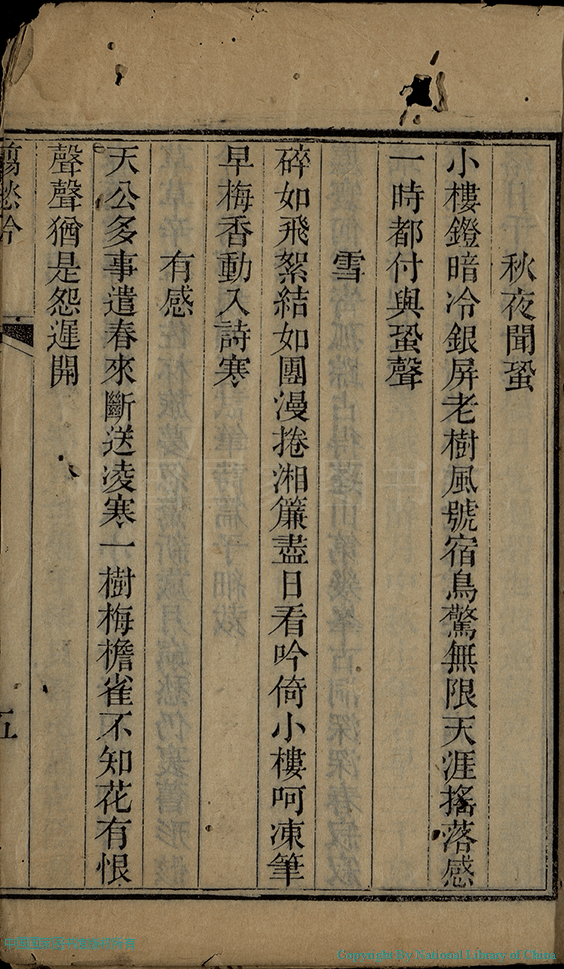 秋夜聞蛩
小樓鐙暗冷銀屏老樹風號宿鳥驚無限天涯搖落感
一時都付與蛩聲
雪
碎如飛絮結如團漫捲湘簾盡日看吟倚小樓呵凍筆
早梅香動入詩寒
有感
天公多事遣春來斷送凌寒一樹梅檐雀不知花有恨
聲聲猶是怨遲開
翦愁吟
五
Copyright By National Library of China